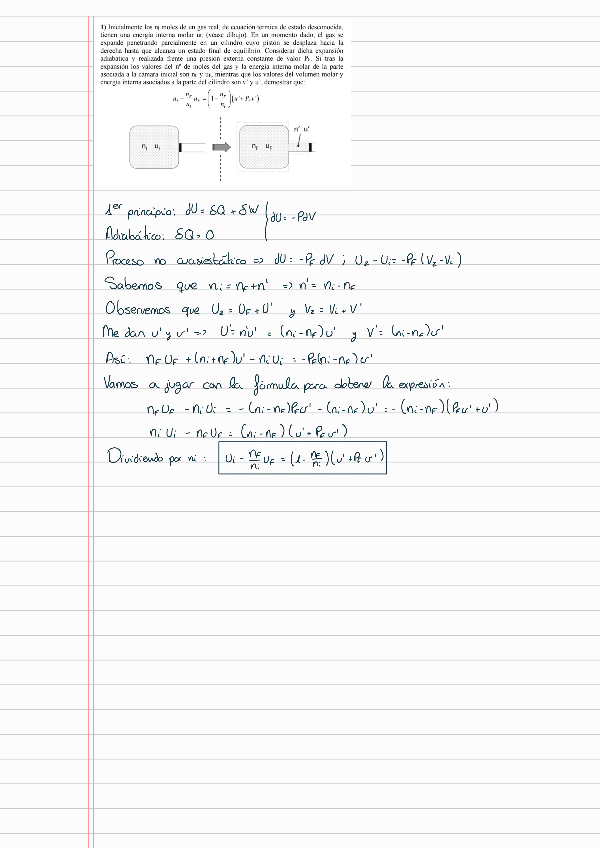 1) Inicialmente los nᵢ moles de un gas real, de ecuación térmica de estado desconocida,
tienen una energía interna molar uᵢ (véase dibujo). En un momento dado, el gas se
expande penetrando parcialmente en un cilindro cuyo pistón se desplaza hacia la
derecha hasta que alcanza un estado final de equilibrio. Considerar dicha expansión
adiabática y realizada frente una presión externa constante de valor P_f. Si tras la
expansión los valores del nº de moles del gas y la energía interna molar de la parte
asociada a la cámara inicial son n_f y u_f, mientras que los valores del volumen molar y
energía interna asociados a la parte del cilindro son v' y u', demostrar que:
uᵢ - n_F/nᵢ u_F = (1 - n_F/nᵢ)(u' + P_f v')
n' u'
nᵢ uᵢ
n_f u_f
1er principio: dU = δQ + δW } dU = -PdV
Adiabático: δQ = 0
Proceso no cuasiestático => dU = -P_F dV ; U₂ - Uᵢ = -P_F (V₂ - Vᵢ)
Sabemos que nᵢ = n_F + n' => n' = nᵢ - n_F
Observemos que U₂ = U_F + U' y V₂ = Vᵢ + V'
Me dan u' y v' => U' = n'u' = (nᵢ - n_F)u' y V' = (nᵢ - n_F)v'
Así: n_F U_F + (nᵢ + n_F)u' - nᵢUᵢ = -P_F(nᵢ - n_F)v'
Vamos a jugar con la fórmula para obtener la expresión:
n_F U_F - nᵢ Uᵢ = -(nᵢ - n_F)P_F v' - (nᵢ - n_F)u' = -(nᵢ - n_F)(P_F v' + u')
nᵢ Uᵢ - n_F U_F = (nᵢ - n_F)(u' + P_F v')
Dividiendo por nᵢ : Uᵢ - n_F/nᵢ U_F = (1 - n_F/nᵢ)(u' + P_f v')